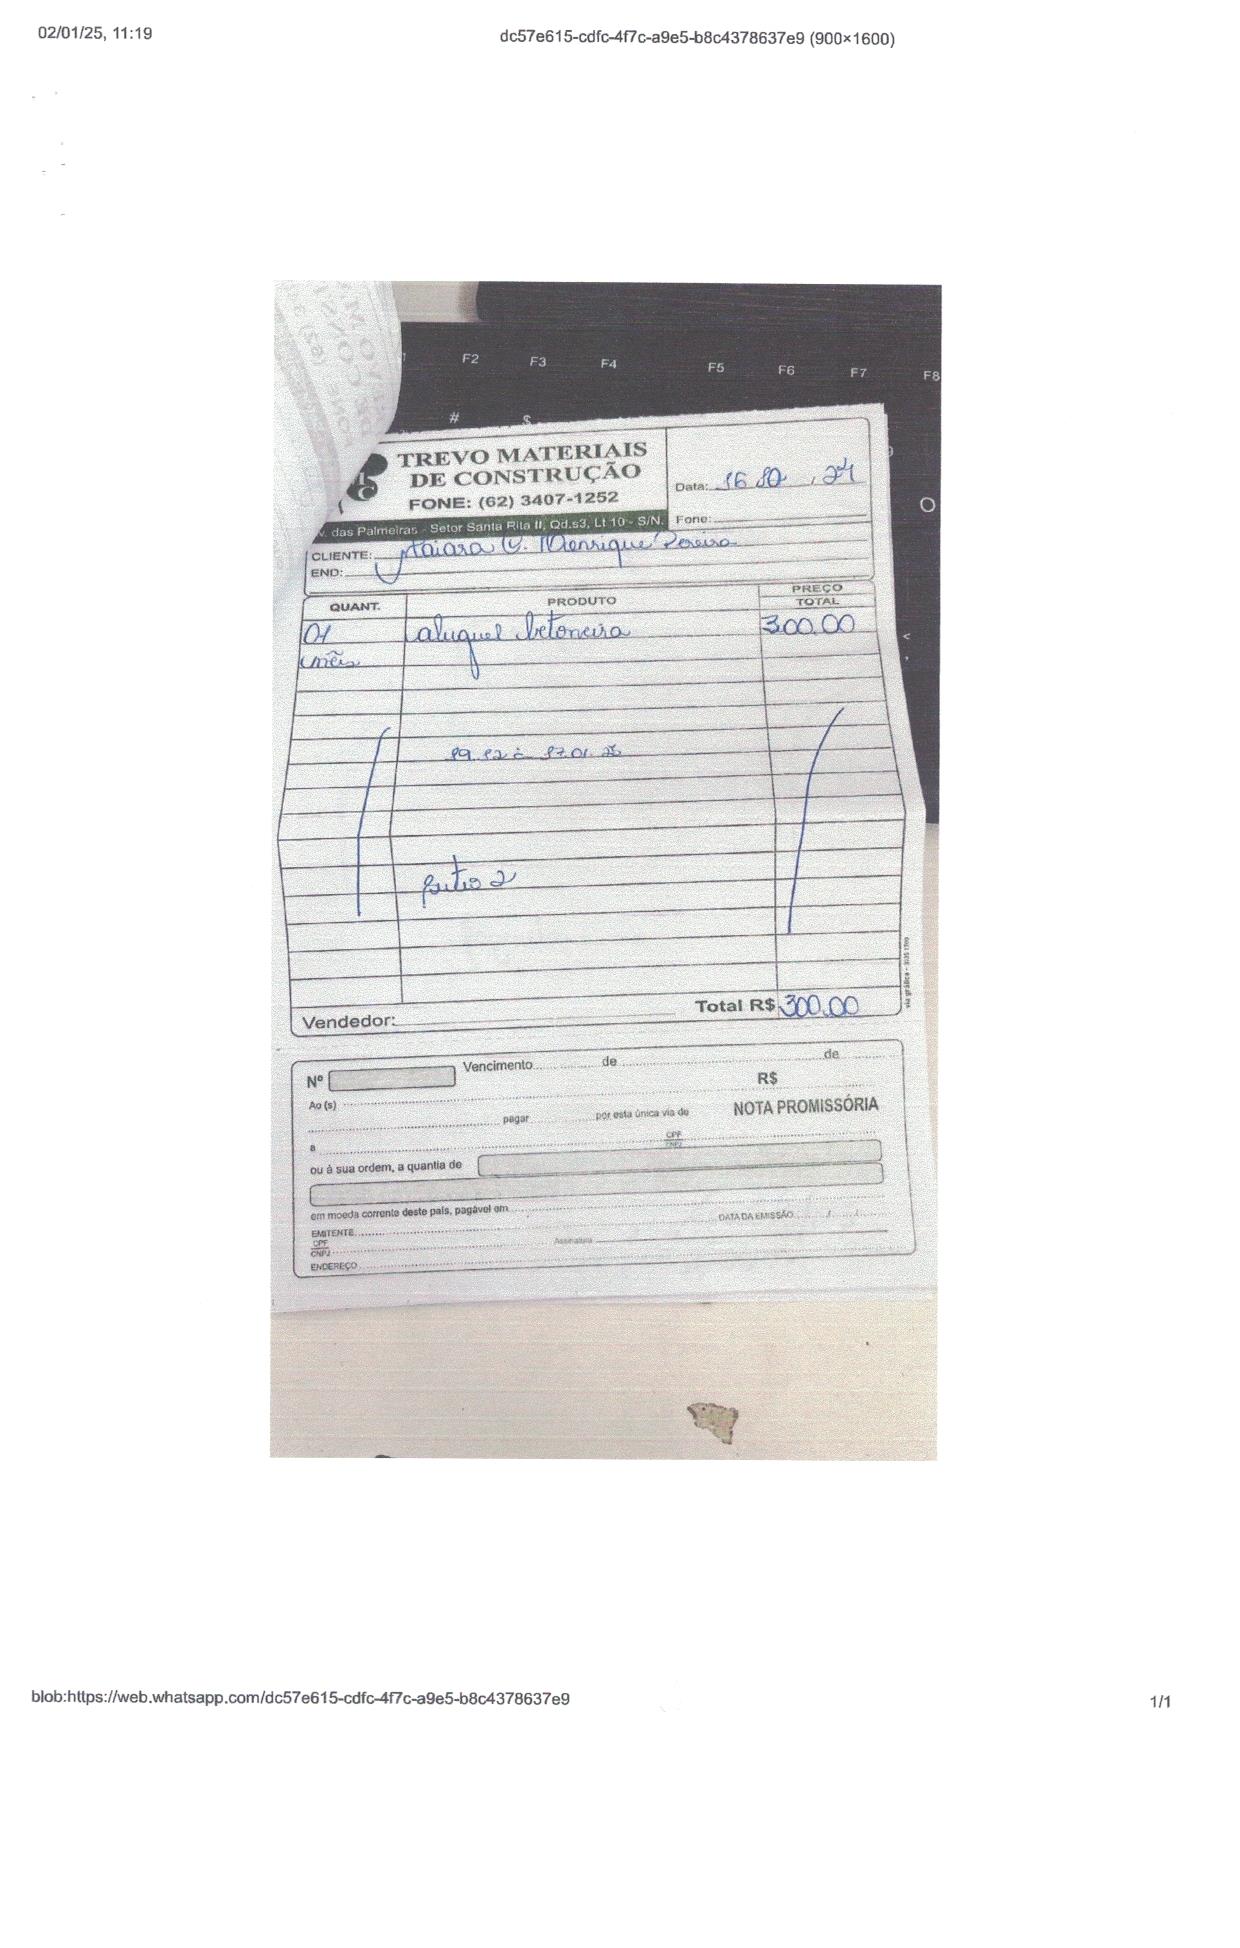 02/01/25, 11:19
dc57e615-cdfc-4f7c-a9e5-b8c4378637e9 (900×1600)
F2 F3 F4 F5 F6 F7 F8
# $
O
TREVO MATERIAIS
DE CONSTRUÇÃO
FONE: (62) 3407-1252
v. das Palmeiras - Setor Santa Rita II, Qd.s3, Lt 10 - S/N.
Data: 24
Fone:
CLIENTE: Henrique Pereira
END:
QUANT. PRODUTO PREÇO TOTAL
01 aluguel betoneira 300.00
mês
fortio 2
Total R$ 300.00
Vendedor:
via gráfica -
Nº Vencimento de de
R$
Ao(s)
pagar por esta única via de NOTA PROMISSÓRIA
a CPF
CNPJ
ou à sua ordem, a quantia de
em moeda corrente deste país, pagável em
DATA DA EMISSÃO / /
EMITENTE
CPF
CNPJ Assinatura
ENDEREÇO
blob:https://web.whatsapp.com/dc57e615-cdfc-4f7c-a9e5-b8c4378637e9
1/1